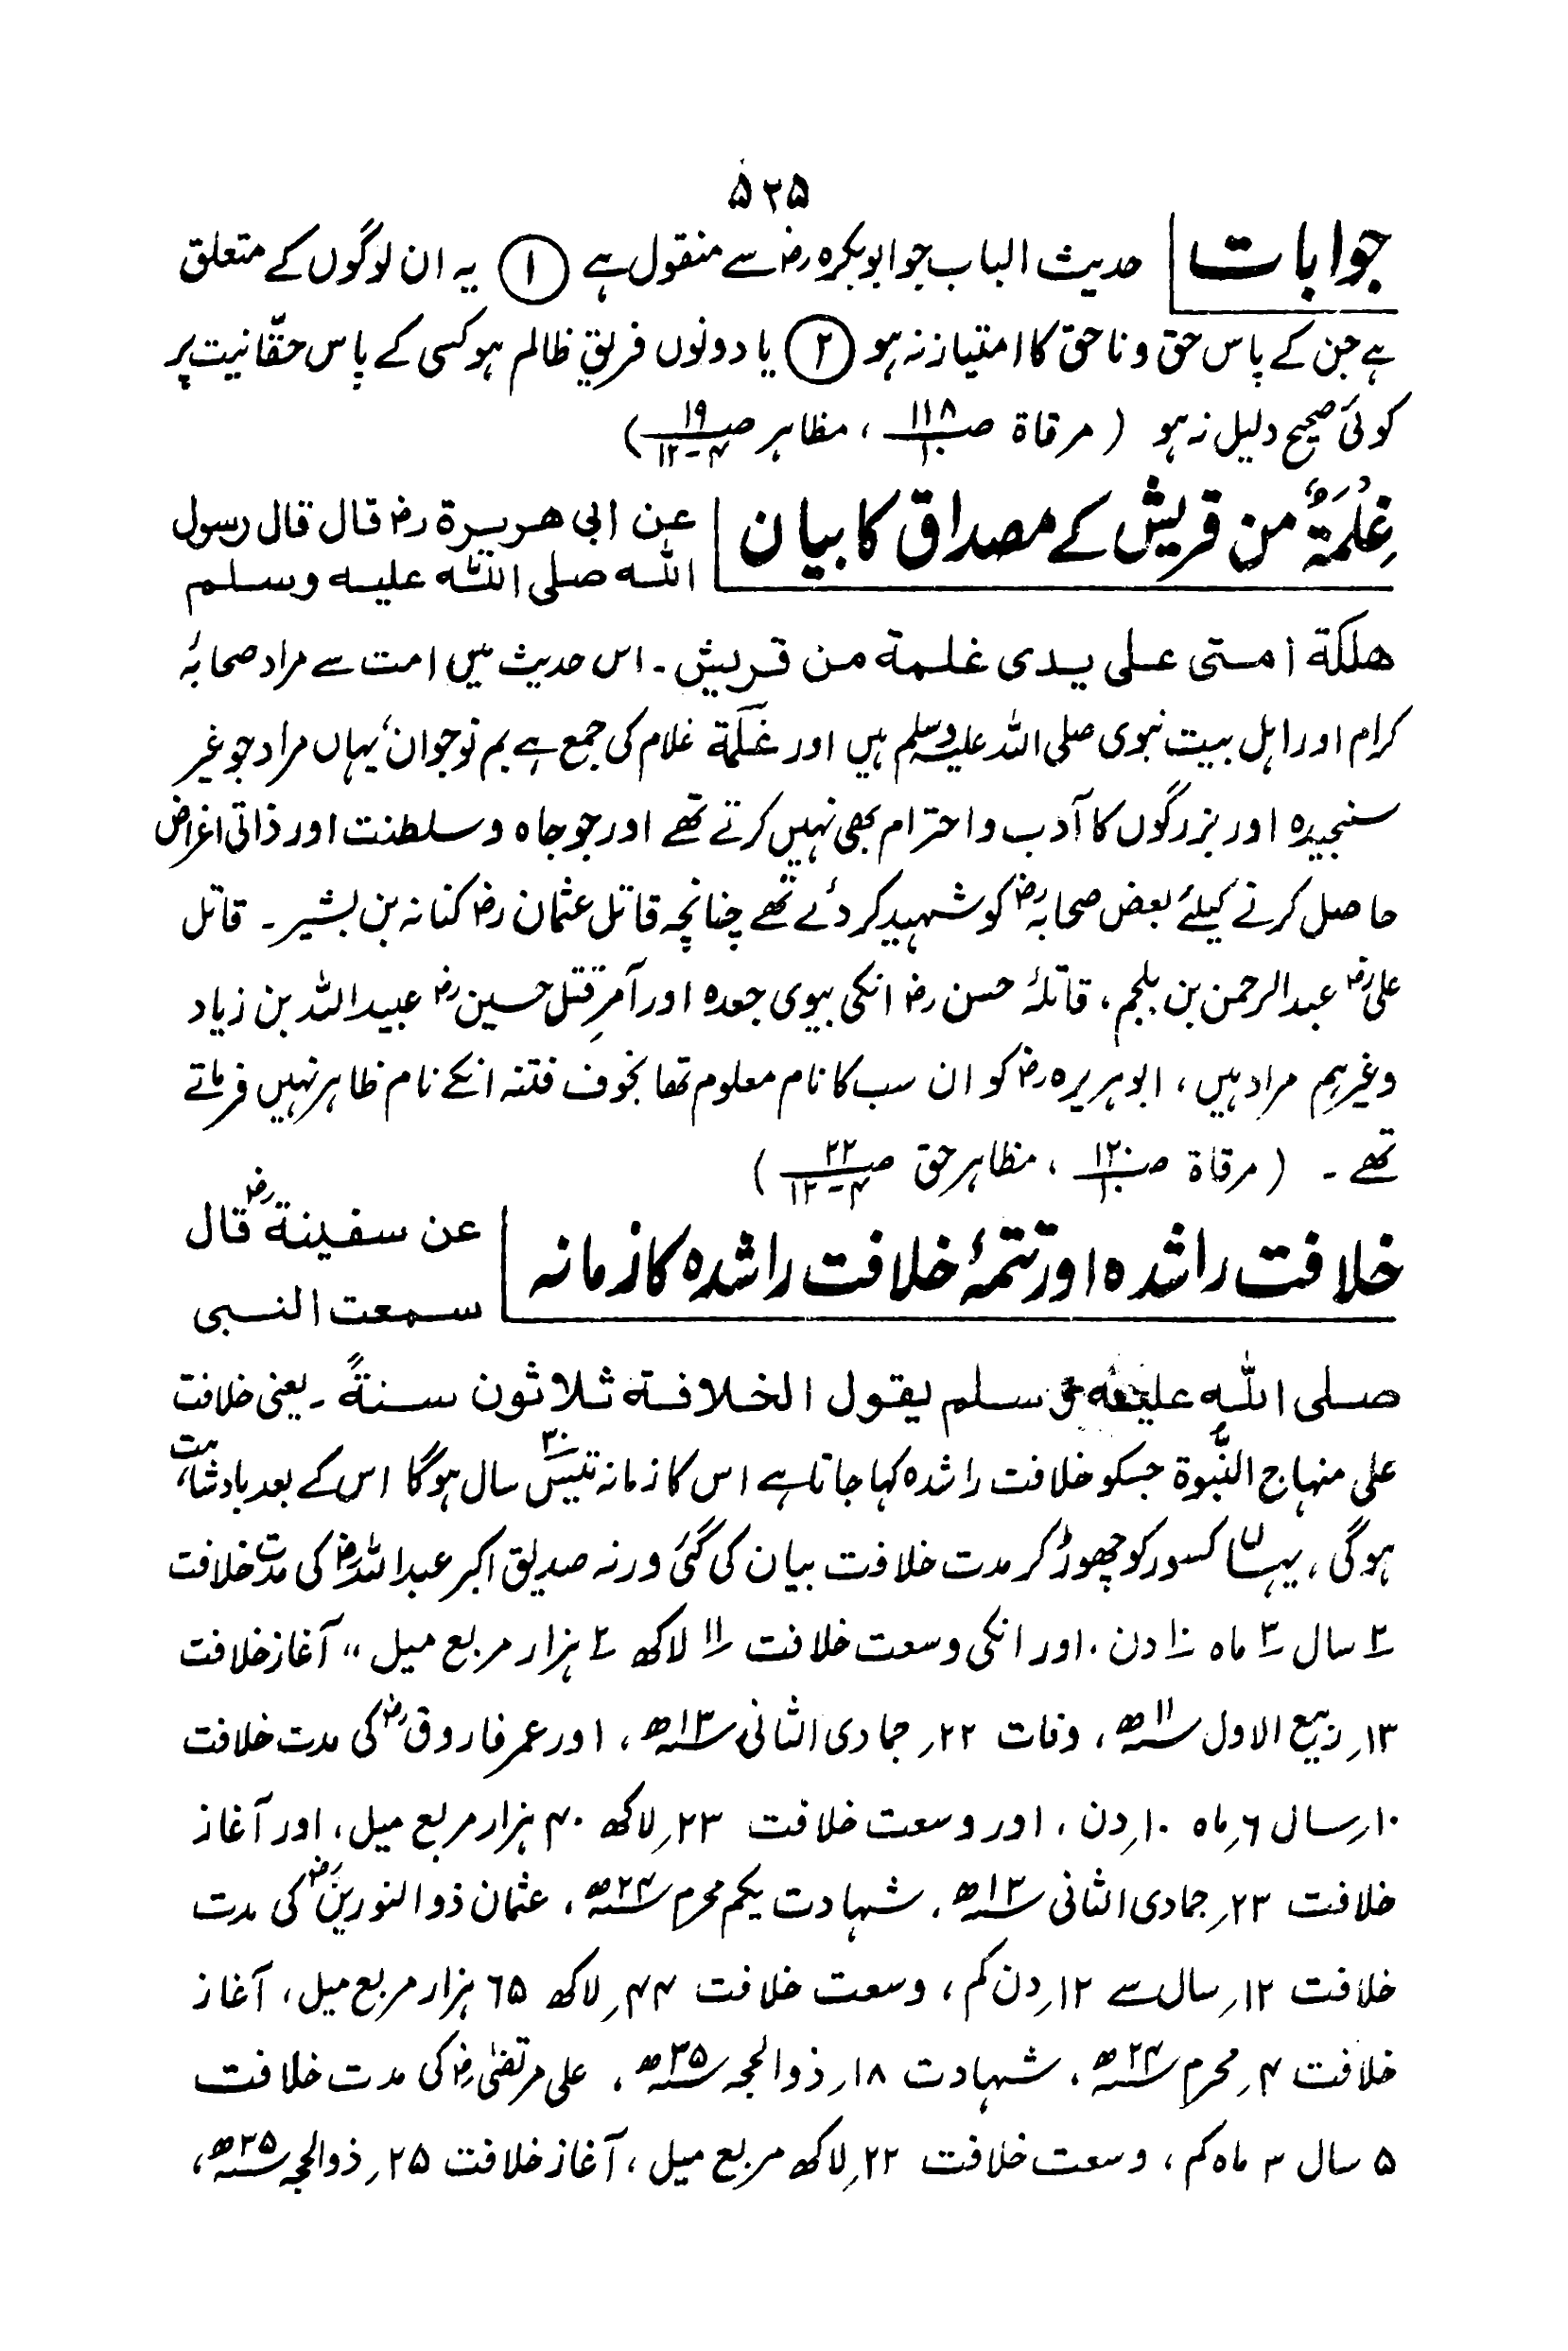 ۵۲۵
جوابات حدیث الباب جو ابوبکرہ رض سے منقول ہے ① یہ ان لوگوں کے متعلق
ہے جن کے پاس حق و ناحق کا امتیاز نہ ہو ② یا دونوں فریق ظالم ہو کسی کے پاس حقّانیت پر
کوئی صحیح دلیل نہ ہو ( مرقاۃ صـ۱۱۸/۱۰ ، مظاہر صـ۱۹/۴-۱۲ )
غِلْمَةٌ من قریش کے مصداق کا بیان عن ابی ھریرۃ رض قال قال رسول
اللہ صلی اللّٰه علیه وسلم
ھلکة امتی علی یدی غلمة من قریش۔ اس حدیث میں امت سے مراد صحابۂ
کرام اور اہل بیت نبوی صلی اللہ علیہ وسلم ہیں اور غلمة غلام کی جمع ہے بم نوجوان، یہاں مراد جو غیر
سنجیدہ اور بزرگوں کا آدب و احترام بھی نہیں کرتے تھے اور جو جاہ و سلطنت اور ذاتی اغراض
حاصل کرنے کیلئے بعض صحابہ رض کو شہید کر دئے تھے چنانچہ قاتل عثمان رض کنانہ بن بشیر۔ قاتل
علی رض عبدالرحمن بن ملجم، قاتلۂ حسن رض انکی بیوی جعدہ اور آمرِ قتل حسین رض عبید اللہ بن زیاد
وغیرہم مراد ہیں، ابوہریرہ رض کو ان سب کا نام معلوم تھا بخوف فتنہ انکے نام ظاہر نہیں فرماتے
تھے۔ ( مرقاۃ صـ۱۲۰/۱۰ ، مظاہر حق صـ۲۲/۴-۱۲ )
خلافت راشدہ اور تتمۂ خلافت راشدہ کا زمانہ عن سفینة رض قال
سمعت النبی
صلی اللّٰه علیه وسلم یقول الخلافة ثلاثون سنةً۔ یعنی خلافت
علی منہاج النُّبوۃ جسکو خلافت راشدہ کہا جاتا ہے اس کا زمانہ تیس ۳۰ سال ہوگا اس کے بعد بادشاہت
ہوگی، یہاں کسور کو چھوڑ کر مدت خلافت بیان کی گئی ورنہ صدیق اکبر عبداللہ رض کی مدت خلافت
۲ سال ۳ ماہ ۱۰ دن۔ اور انکی وسعت خلافت ۱۱ لاکھ ۲ ہزار مربع میل ،، آغاز خلافت
۱۳؍ ربیع الاول ۱۱ھ، وفات ۲۲؍ جمادی الثانی ۱۳ھ، اور عمر فاروق رض کی مدت خلافت
۱۰؍ سال ۶؍ ماہ ۱۰؍ دن، اور وسعت خلافت ۲۳؍ لاکھ ۴۰ ہزار مربع میل، اور آغاز
خلافت ۲۳؍ جمادی الثانی ۱۳ھ، شہادت یکم محرم ۲۴ھ، عثمان ذوالنورین رض کی مدت
خلافت ۱۲؍ سال سے ۱۲؍ دن کم، وسعت خلافت ۴۴؍ لاکھ ۶۵ ہزار مربع میل، آغاز
خلافت ۴؍ محرم ۲۴ھ، شہادت ۱۸؍ ذوالحجہ ۳۵ھ، علی مرتضیٰ رض کی مدت خلافت
۵ سال ۳ ماہ کم، وسعت خلافت ۲۲؍ لاکھ مربع میل، آغاز خلافت ۲۵؍ ذوالحجہ ۳۵ھ،